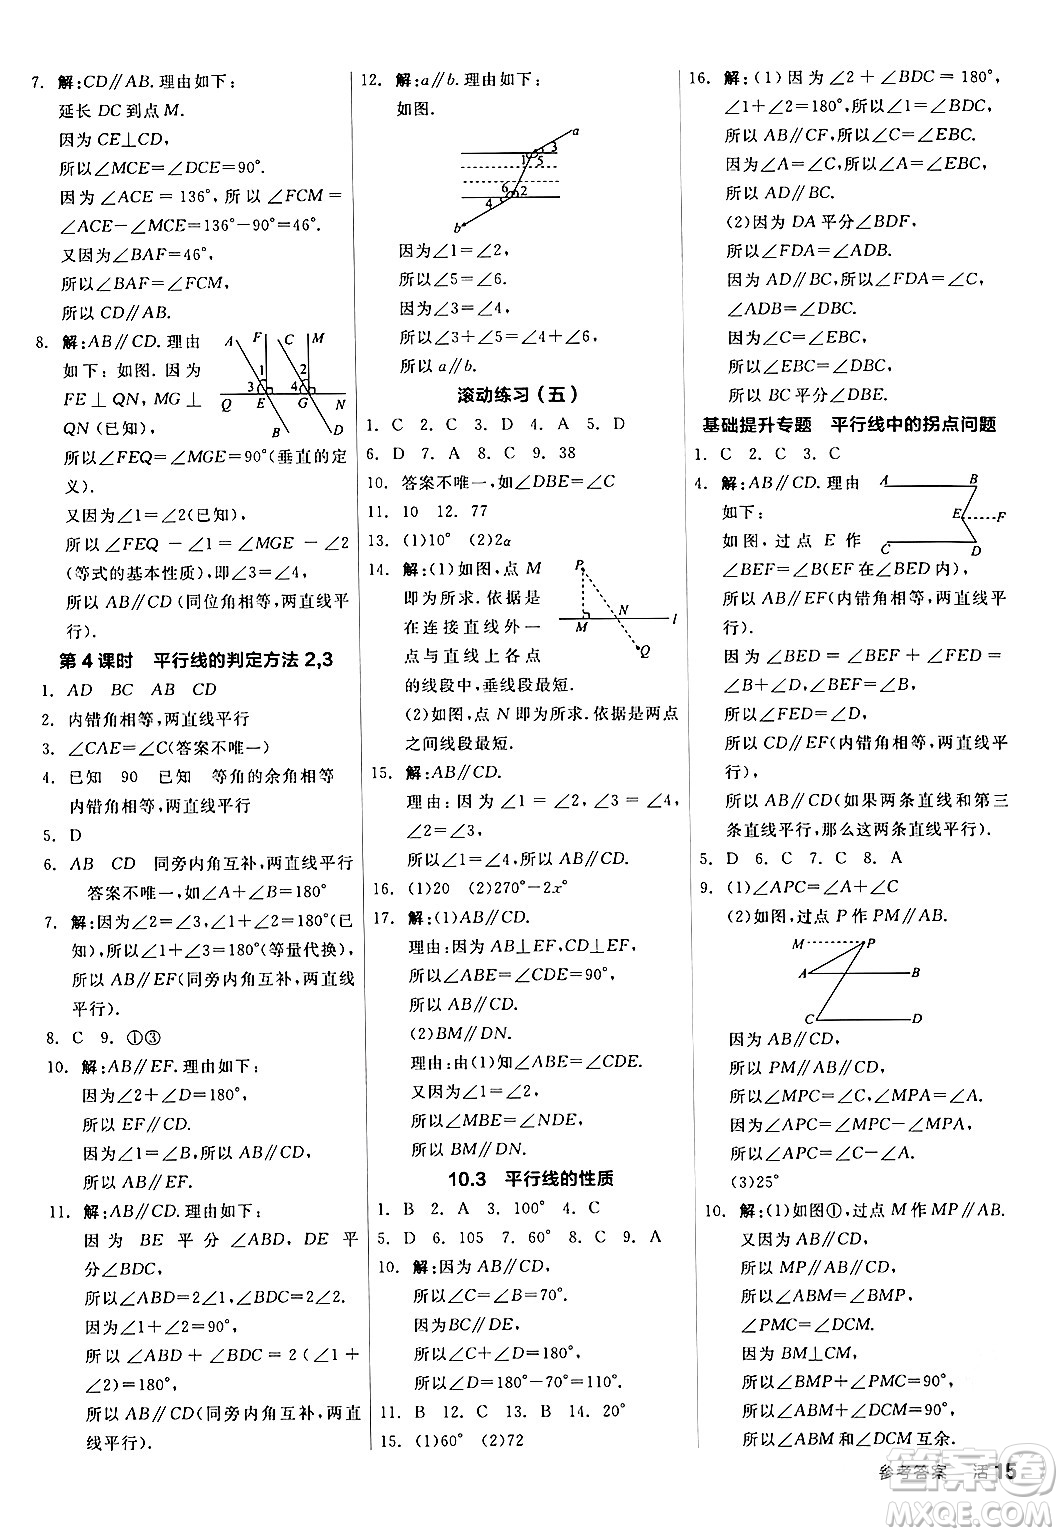 7. 解:CD∥AB.理由如下:
延长 DC 到点 M.
因为 CE⊥CD,
所以∠MCE=∠DCE=90°.
因为 ∠ACE = 136°, 所 以 ∠FCM =
∠ACE-∠MCE=136°-90°=46°.
又因为∠BAF=46°,
所以∠BAF=∠FCM,
所以 CD∥AB.
8. 解:AB∥CD.理由
如下:如图.因为
FE⊥QN,MG⊥
QN(已知),
A F C M
1 2
3 4
Q E G N
B D
所以∠FEQ=∠MGE=90°(垂直的定
义).
又因为∠1=∠2(已知),
所以 ∠FEQ - ∠1 = ∠MGE - ∠2
(等式的基本性质),即∠3=∠4,
所以 AB∥CD(同位角相等,两直线平
行).
第 4 课时 平行线的判定方法 2,3
1. AD BC AB CD
2. 内错角相等,两直线平行
3. ∠CAE=∠C(答案不唯一)
4. 已知 90 已知 等角的余角相等
内错角相等,两直线平行
5. D
6. AB CD 同旁内角互补,两直线平行
答案不唯一,如∠A+∠B=180°
7. 解:因为∠2=∠3,∠1+∠2=180°(已
知),所以∠1+∠3=180°(等量代换),
所以 AB∥EF(同旁内角互补,两直线
平行).
8. C 9. ①③
10. 解:AB∥EF.理由如下:
因为∠2+∠D=180°,
所以 EF∥CD.
因为∠1=∠B,所以 AB∥CD,
所以 AB∥EF.
11. 解:AB∥CD.理由如下:
因 为 BE 平 分 ∠ABD, DE 平
分∠BDC,
所以∠ABD=2∠1,∠BDC=2∠2.
因为∠1+∠2=90°,
所以 ∠ABD + ∠BDC = 2(∠1 +
∠2)=180°,
所以 AB∥CD(同旁内角互补,两直
线平行).
12. 解:a∥b.理由如下:
如图.
a
1 5 3
6 2
4
b
因为∠1=∠2,
所以∠5=∠6.
因为∠3=∠4,
所以∠3+∠5=∠4+∠6,
所以 a∥b.
滚动练习(五)
1. C 2. C 3. D 4. A 5. D
6. D 7. A 8. C 9. 38
10. 答案不唯一,如∠DBE=∠C
11. 10 12. 77
13. (1)10° (2)2α
14. 解:(1)如图,点 M
即为所求.依据是
在连接直线外一
点与直线上各点
P
N
M l
Q
的线段中,垂线段最短.
(2)如图,点 N 即为所求.依据是两点
之间线段最短.
15. 解:AB∥CD.
理由:因为 ∠1 = ∠2,∠3 = ∠4,
∠2=∠3,
所以∠1=∠4,所以 AB∥CD.
16. (1)20 (2)270°-2x°
17. 解:(1)AB∥CD.
理由:因为 AB⊥EF,CD⊥EF,
所以∠ABE=∠CDE=90°,
所以 AB∥CD.
(2)BM∥DN.
理由:由(1)知∠ABE=∠CDE.
又因为∠1=∠2,
所以∠MBE=∠NDE,
所以 BM∥DN.
10.3 平行线的性质
1. B 2. A 3. 100° 4. C
5. D 6. 105 7. 60° 8. C 9. A
10. 解:因为 AB∥CD,
所以∠C=∠B=70°.
因为BC∥DE,
所以∠C+∠D=180°,
所以∠D=180°-70°=110°.
11. B 12. C 13. B 14. 20°
15. (1)60° (2)72
16. 解:(1)因为 ∠2 + ∠BDC = 180°,
∠1+∠2=180°,所以∠1=∠BDC,
所以 AB∥CF,所以∠C=∠EBC.
因为∠A=∠C,所以∠A=∠EBC,
所以 AD∥BC.
(2)因为 DA 平分∠BDF,
所以∠FDA=∠ADB.
因为 AD∥BC,所以∠FDA=∠C,
∠ADB=∠DBC.
因为∠C=∠EBC,
所以∠EBC=∠DBC,
所以 BC 平分∠DBE.
基础提升专题 平行线中的拐点问题
1. C 2. C 3. C
4. 解:AB∥CD.理由
如下:
如图,过点 E 作
A B
E F
C D
∠BEF=∠B(EF 在∠BED 内),
所以 AB∥EF(内错角相等,两直线平
行).
因为 ∠BED = ∠B + ∠D,∠BED =
∠BEF+∠FED,∠BEF=∠B,
所以∠FED=∠D,
所以 CD∥EF(内错角相等,两直线平
行),
所以 AB∥CD(如果两条直线和第三
条直线平行,那么这两条直线平行).
5. D 6. C 7. C 8. A
9. (1)∠APC=∠A+∠C
(2)如图,过点 P 作 PM∥AB.
M P
A B
C D
因为 AB∥CD,
所以 PM∥AB∥CD,
所以∠MPC=∠C,∠MPA=∠A.
因为∠APC=∠MPC-∠MPA,
所以∠APC=∠C-∠A.
(3)25°
10. 解:(1)如图①,过点 M 作 MP∥AB.
又因为 AB∥CD,
所以 MP∥AB∥CD,
所以∠ABM=∠BMP,
∠PMC=∠DCM.
因为 BM⊥CM,
所以∠BMP+∠PMC=90°,
所以∠ABM+∠DCM=90°,
所以∠ABM 和∠DCM 互余.
参考答案 活 15
答案圈
MXQE.COM